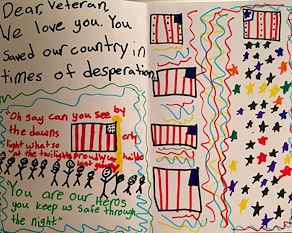 Dear, Veteran
We love you. You
Saved our country in
times of desperation
"Oh say can you see by
the dawns
light what so
at the twilights
last
You are our Heros
you keep us safe through
the night."